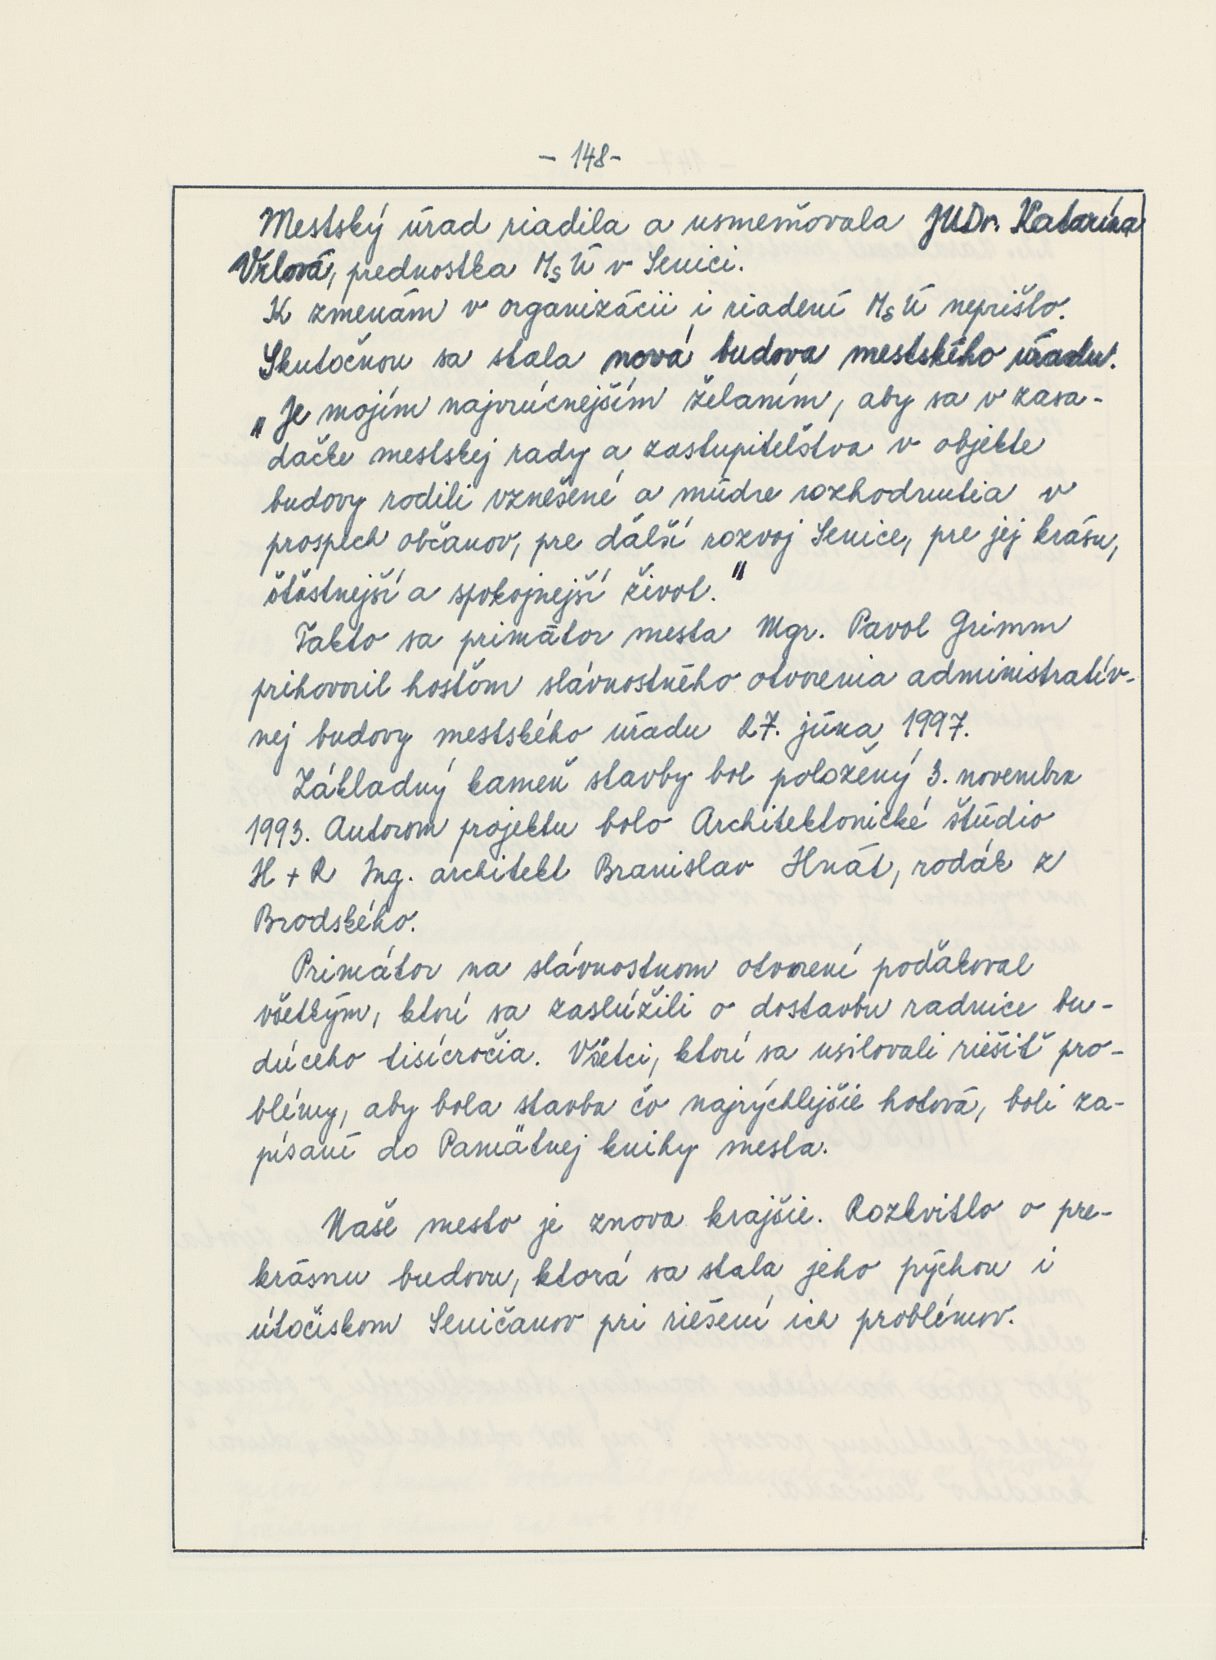 - 148 -
Mestský úrad riadila a usmerňovala JUDr. Katarína
Vrlová, prednostka MsÚ v Senici.
K zmenám v organizácii i riadení MsÚ neprišlo.
Skutočnou sa stala nová budova mestského úradu.
„Je mojím najvrúcnejším želaním, aby sa v zasa-
dačke mestskej rady a zastupiteľstva v objekte
budovy rodili vznešené a múdre rozhodnutia v
prospech občanov, pre ďalší rozvoj Senice, pre jej krásu,
šťastnejší a spokojnejší život."
Takto sa primátor mesta Mgr. Pavol Grimm
prihovoril hosťom slávnostného otvorenia administratív-
nej budovy mestského úradu 27. júna 1997.
Základný kameň stavby bol položený 3. novembra
1993. Autorom projektu bolo Architektonické štúdio
H + R Ing. architekt Branislav Hnát, rodák z
Brodského.
Primátor na slávnostnom otvorení poďakoval
všetkým, ktorí sa zaslúžili o dostavbu radnice bu-
dúceho tisícročia. Všetci, ktorí sa usilovali riešiť pro-
blémy, aby bola stavba čo najrýchlejšie hotová, boli za-
písaní do Pamätnej knihy mesta.
Naše mesto je znova krajšie. Rozkvitlo o pre-
krásnu budovu, ktorá sa stala jeho pýchou i
útočiskom Seničanov pri riešení ich problémov.